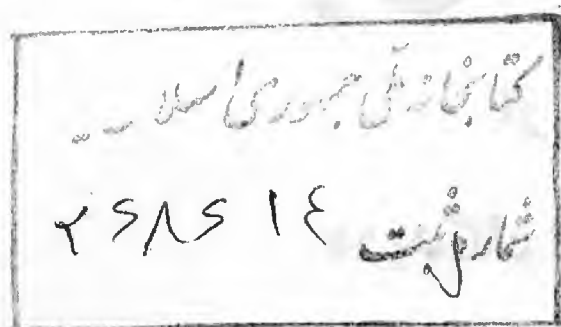 کتابخانه ملی جمهوری اسلا
شماره ثبت ۲۶۸۶۱٤